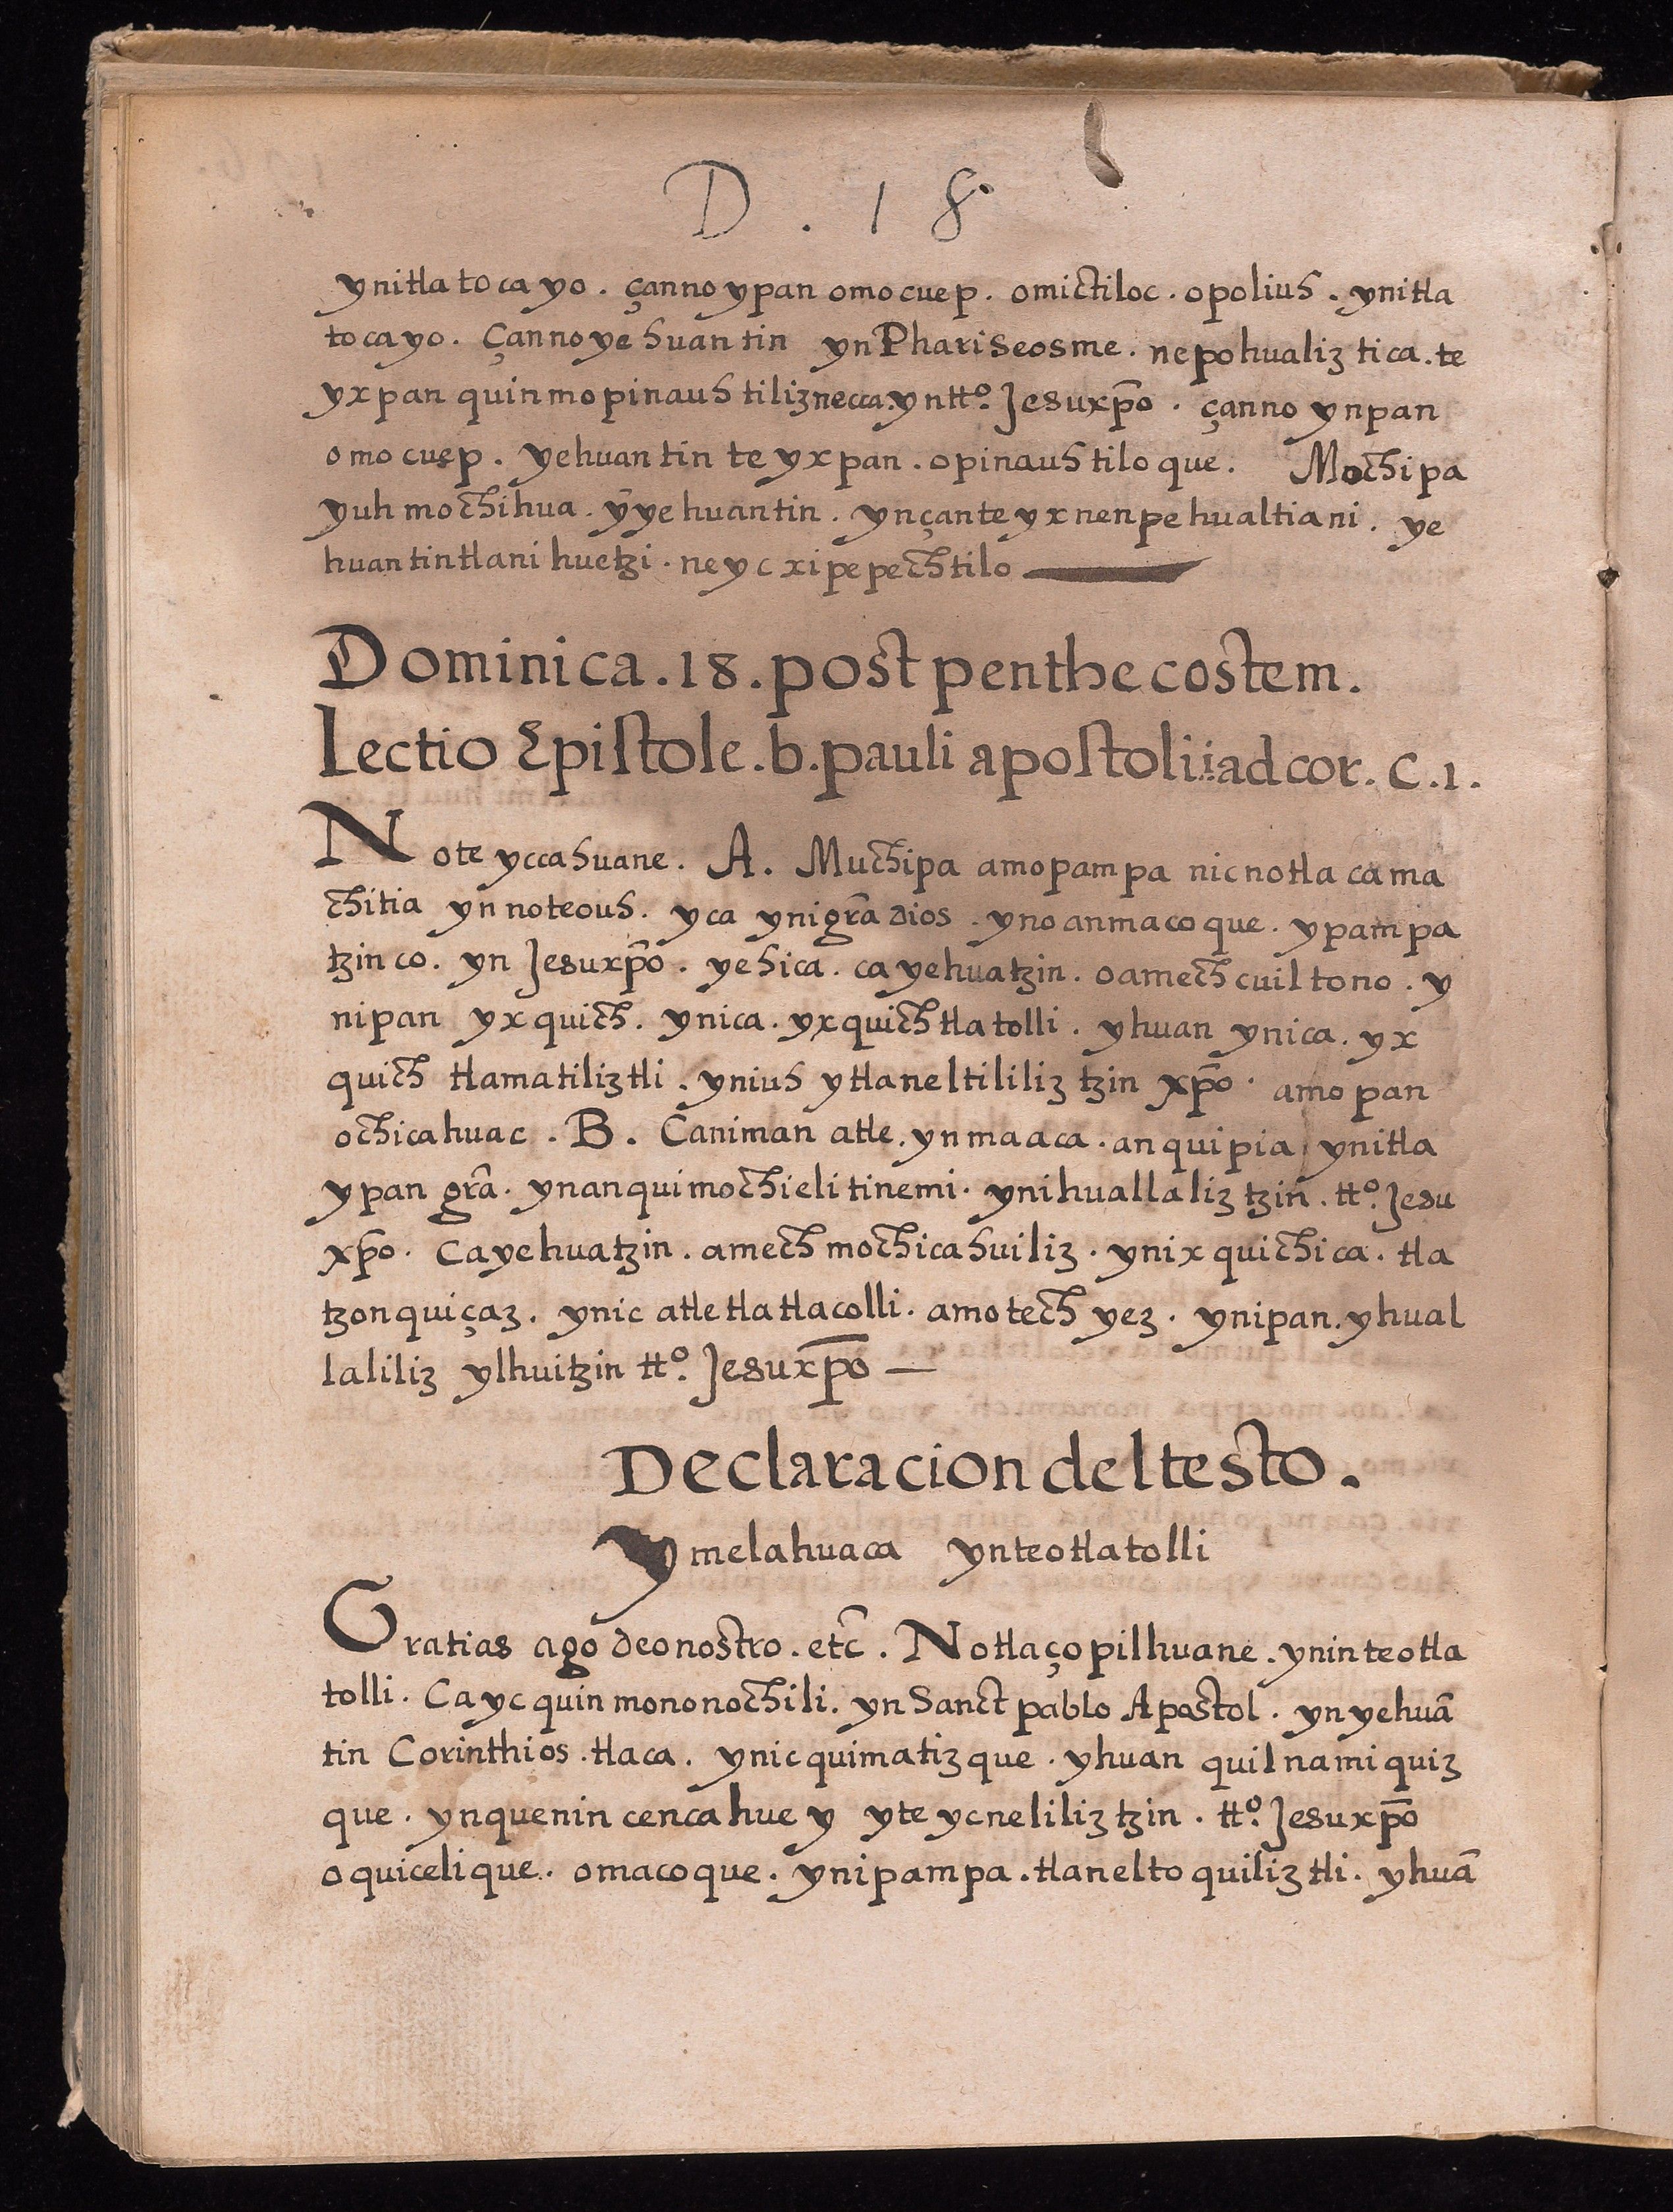 D . 18
ynitlatocayo. çannoypan omocuep. omictiloc. opoliuh. ynitla
tocayo. Çannoyehuantin yn Phariseosme. nepohualiztica. te
yxpan quinmopinauhtiliznecca. yn tt.º Jesuxp̄o. çanno ynpan
omocuep. yehuantin teyxpan. opinauhtiloque. Mochipa
yuh mochihua. ȳyehuantin. ynçanteyxnenpehualtiani. ye
huantintlanihuetzi. neycxipepechtilo
Dominica. 18. post penthecostem.
Lectio Epistole. b. pauli apostoli i ad cor. C. 1.
Noteyccahuane. A. Muchipa amopampa nicnotlacama
chitia yn noteouh. yca ynigr̄a dios. ynoanmacoque. ypampa
tzinco. yn Jesuxp̄o. yehica. cayehuatzin. oamechcuiltono. y
nipan yxquich. ynica. yxquichtlatolli. yhuan ynica. yx
quich tlamatiliztli. yniuh ytlaneltililiztzin xp̄o. amopan
ochicahuac. B. Caniman atle. ynmaaca. anquipia ynitla
ypan gr̄a. ynanquimochielitinemi. ynihuallaliztzin. tt.º Jesu
xp̄o. Cayehuatzin. amechmochicahuiliz. ynixquichica. tla
tzonquiçaz. ynic atletlatlacolli. amotech yez. ynipan. yhual
laliliz ylhuitzin tt.º Jesuxp̄o
Declaracion del testo.
Ymelahuaca ynteotlatolli
Gratias ago deo nostro. etc̄. Notlaçopilhuane. yninteotla
tolli. Cayc quinmononochili. yn Sanct pablo Apostol. ynyehuā
tin Corinthios. tlaca. ynicquimatizque. yhuan quilnamiquiz
que. ynquenin cencahuey yteycneliliztzin. tt.º Jesuxp̄o
oquicelique. omacoque. ynipampa. tlaneltoquiliztli. yhuā